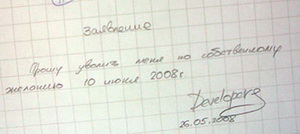 Заявление
Прошу уволить меня по собственному
желанию 10 июня 2008г.
Developers
26.05.2008